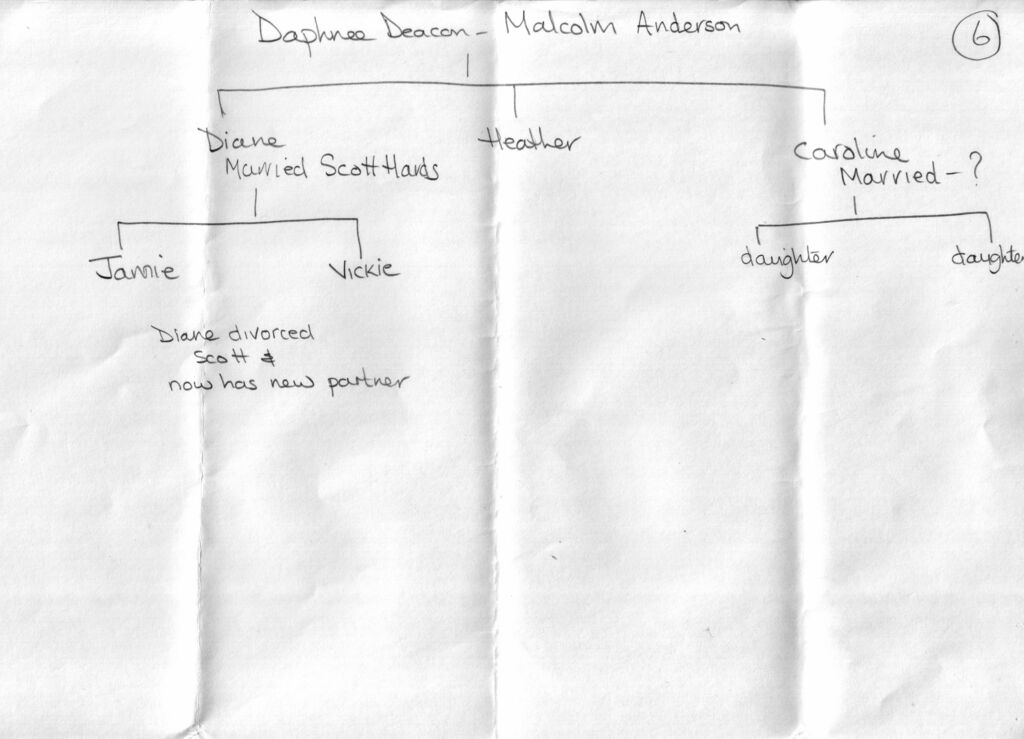 Daphnee Deacon - Malcolm Anderson
6
Diane
Married Scott Hards
Heather
Caroline
Married - ?
Jamie
Vickie
daughter
daughter
Diane divorced
Scott &
now has new partner